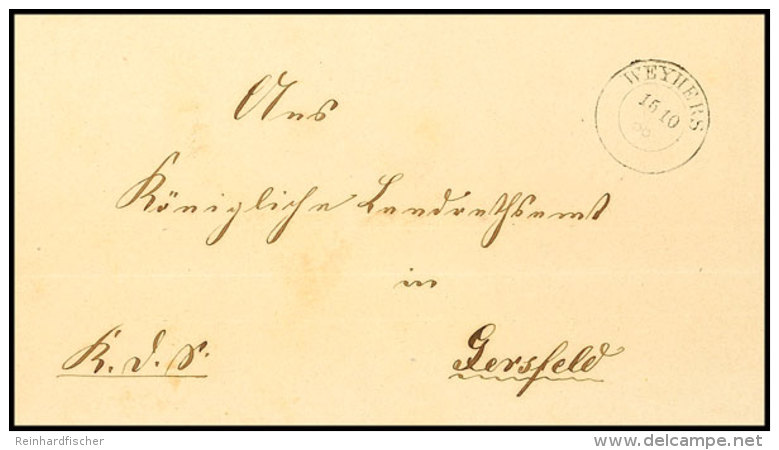 WEYHERS
15 10
Ans
Königliche Landrathsamt
in
K. d. S.
Gersfeld
Reinhardfischer
delcampe.net